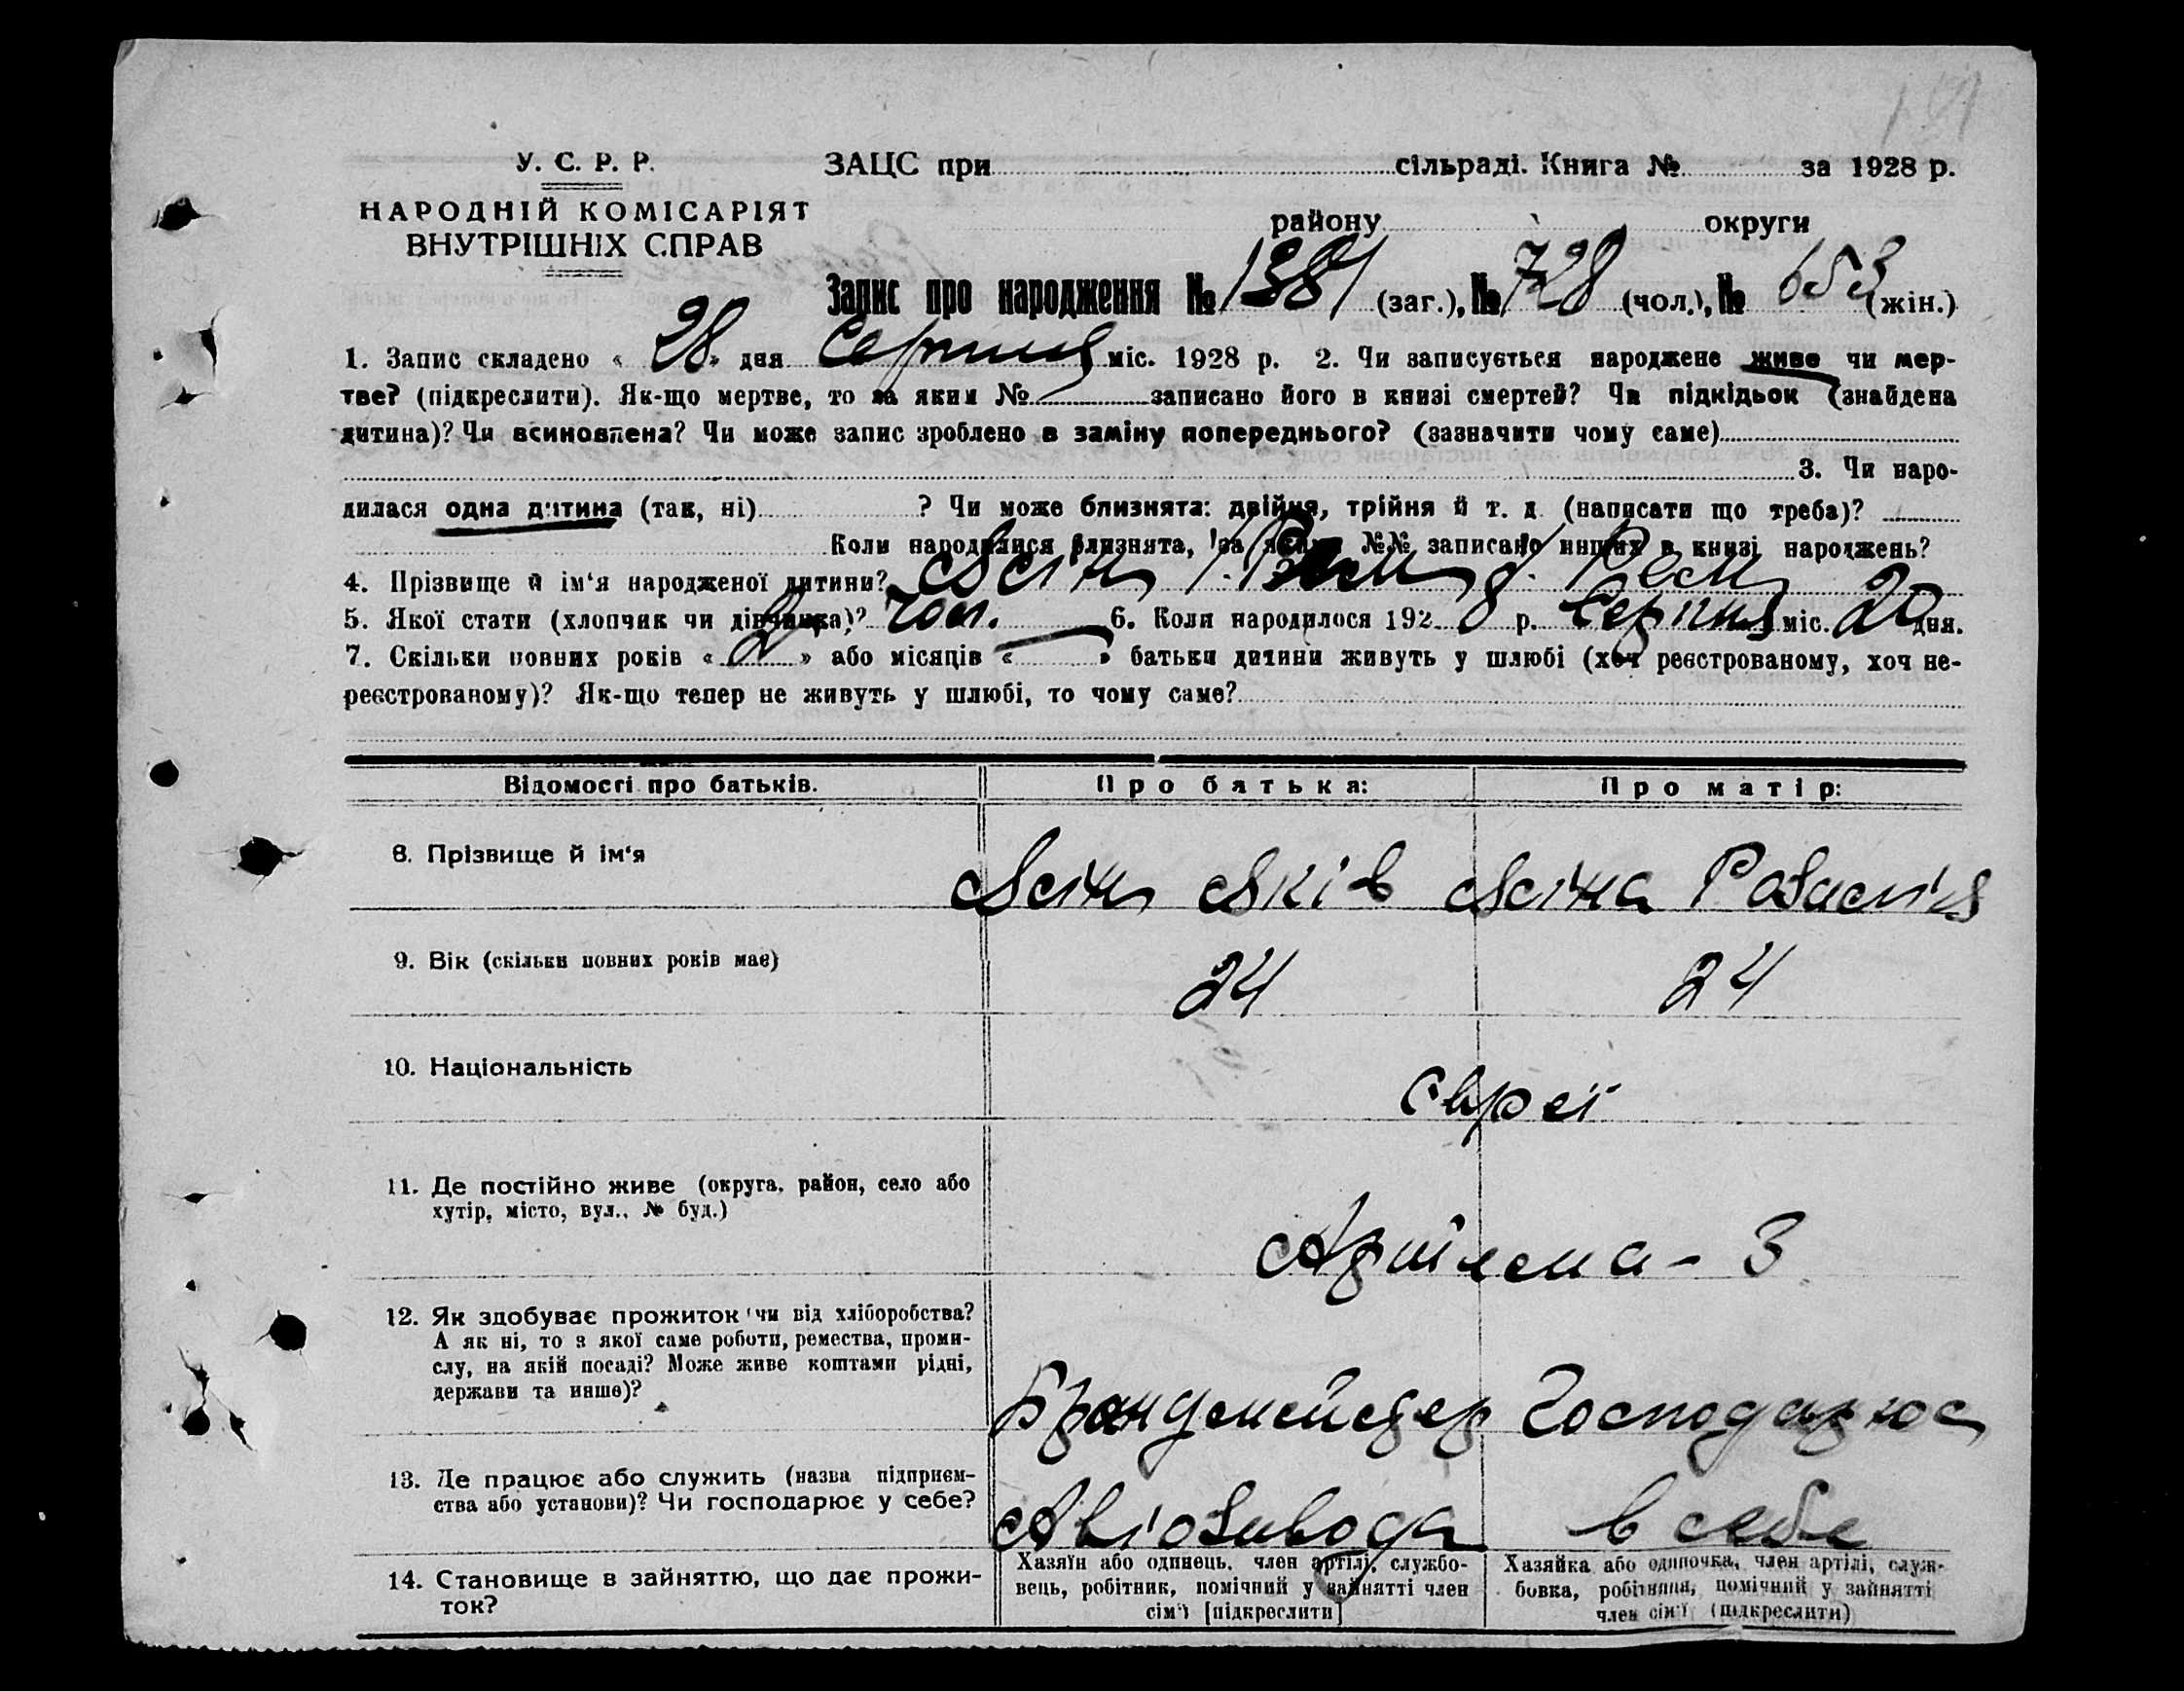 У. С. Р. Р.
НАРОДНІЙ КОМІСАРІЯТ
ВНУТРІШНІХ СПРАВ
ЗАЦС при сільраді. Книга № за 1928 р.
району округи
Запис про народження № 1381 (заг.), № 728 (чол.), № 653 (жін.)
1. Запис складено « 28 » дня Серпня міс. 1928 р. 2. Чи записується народжене живе чи мер-
тве? (підкреслити). Як-що мертве, то за яким № записано його в книзі смертей? Чи підкідьок (знайдена
дитина)? Чи всиновлена? Чи може запис зроблено в заміну попереднього? (зазначити чому саме)
3. Чи наро-
дилася одна дитина (так, ні) ? Чи може близнята: двійня, трійня й т. д. (написати що треба)?
Коли народилися близнята, за яким №№ записано инших в книзі народжень?
4. Прізвище й ім‘я народженої дитини? Ясін Рем
5. Якої стати (хлопчик чи дівчинка)? чол. 6. Коли народилося 192 8 р. Серпня міс. 20 дня.
7. Скільки повних років « 2 » або місяців « — » батьки дитини живуть у шлюбі (хоч реєстрованому, хоч не-
реєстрованому)? Як-що тепер не живуть у шлюбі, то чому саме?
Відомості про батьків. Про батька: Про матір:
8. Прізвище й ім‘я Ясін Яків Ясіна
9. Вік (скільки повних років має) 24 24
10. Національність євреї
11. Де постійно живе (округа, район, село або
хутір, місто, вул., № буд.)
Артьема - 3
12. Як здобуває прожиток чи від хліборобства?
А як ні, то з якої саме роботи, ремества, проми-
слу, на якій посаді? Може живе коштами рідні,
держави та инше)?
Брандмейстер Господарює
13. Де працює або служить (назва підприєм-
ства або установи)? Чи господарює у себе?
в себе
14. Становище в зайняттю, що дає прожи-
ток?
Хазяїн або одинець, член артілі, службо-
вець, робітник, помічний у зайнятті член
сім‘ї [підкреслити]
Хазяйка або одиночка, член артілі, служ-
бовка, робітниця, помічний у зайнятті
член сім‘ї (підкреслити)